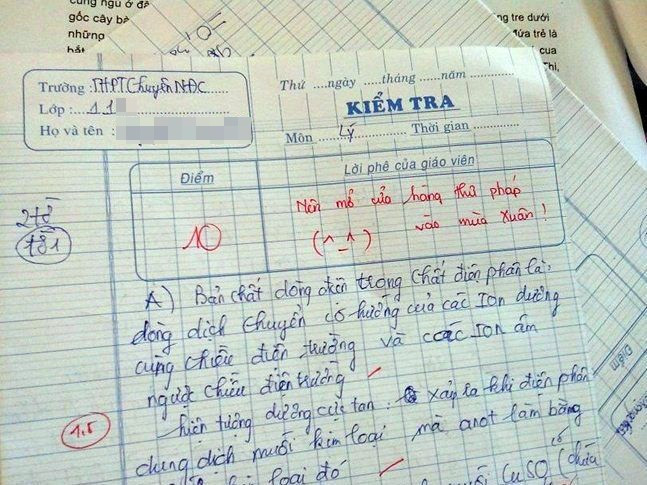 cung ngu ở đâ
gốc cây bà
những
ng tre dưới
đứa trẻ là
cua
Trường : THPT Chuyên NĐC
Thứ .....ngày .....tháng .....năm
Lớp : 11
KIỂM TRA
Họ và tên :
Môn Lý Thời gian
Điểm
Lời phê của giáo viên
10
Nên mở cửa hàng thư pháp
(^_^) vào mùa Xuân !
2 tờ
tờ 1
A) Bản chất dòng điện trong chất điện phân là:
dòng dịch chuyển có hướng của các Ion dương
cùng chiều điện trường và các Ion âm
ngược chiều điện trường
hiện tượng dương cực tan : xảy ra khi điện phân
1.5
dung dịch muối kim loại mà anot làm bằng
loại đó
CuSO4 (chứa
Điểm